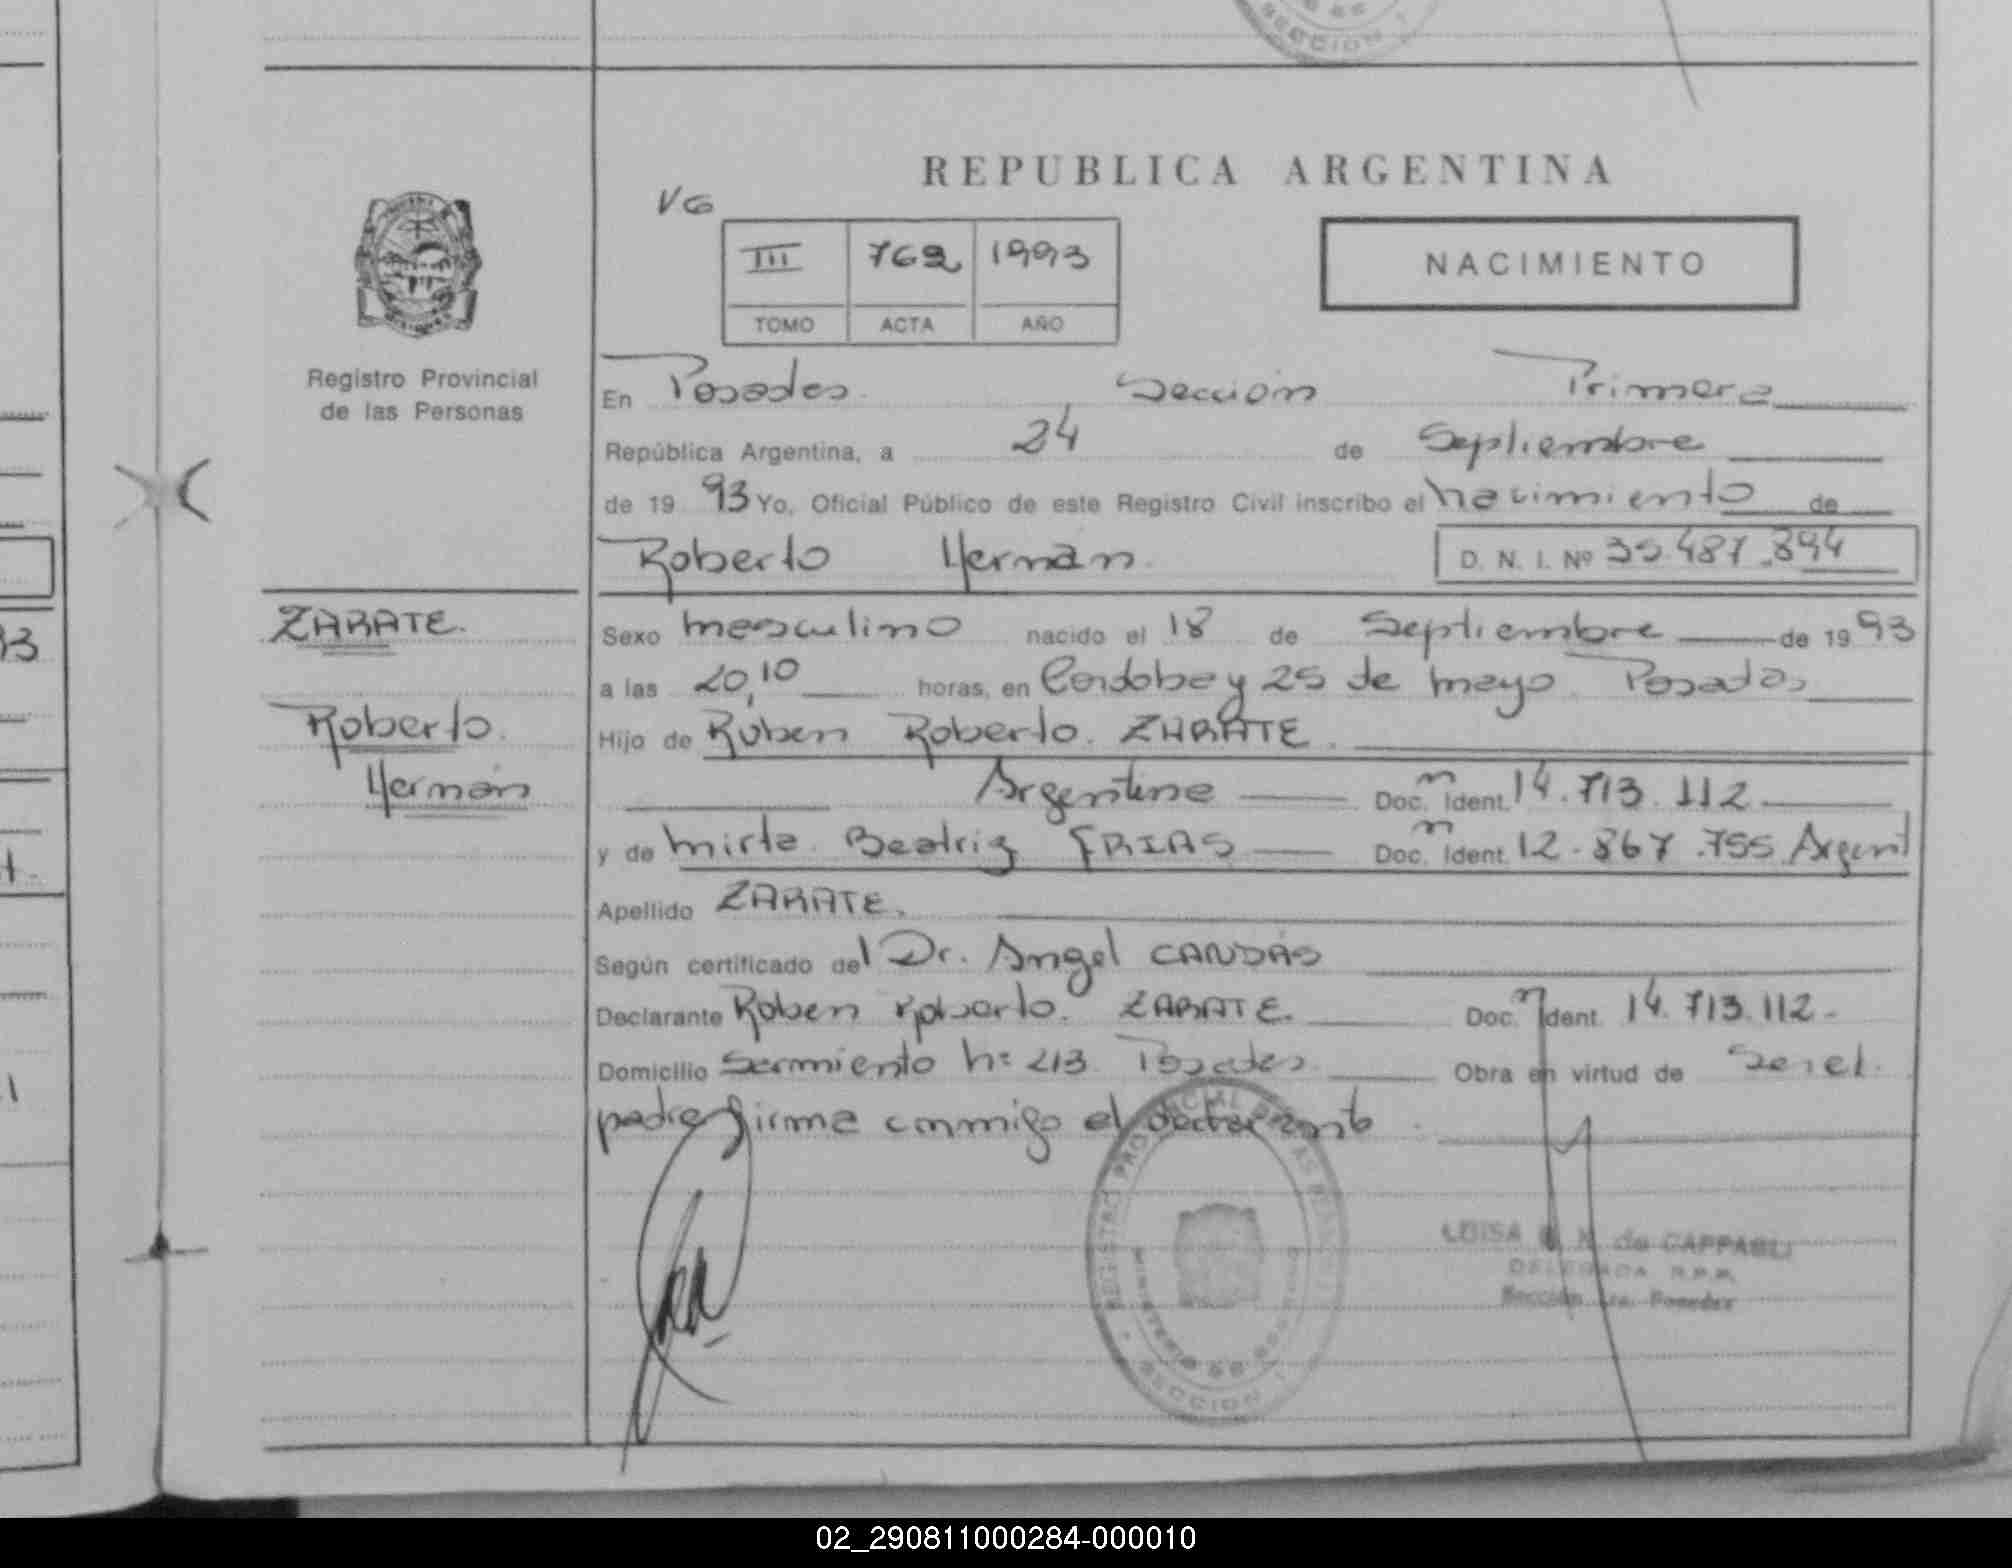 SECCION 1
REPUBLICA ARGENTINA
VG
III 762 1993
TOMO ACTA AÑO
NACIMIENTO
Registro Provincial
de las Personas
En Posadas Sección Primera
República Argentina, a 24 de Septiembre
de 19 93 Yo, Oficial Público de este Registro Civil inscribo el nacimiento de
Roberto Hernán. D. N. I. Nº 35.487.894
ZARATE.
Roberto.
Hernán
Sexo masculino nacido el 18 de Septiembre de 19 93
a las 20,10 horas, en Cordoba y 25 de mayo. Posadas
Hijo de Ruben Roberto. ZARATE.
Argentina Doc. Ident. 14.713.112
y de Mirta Beatriz FRIAS Doc. Ident. 12.867.755 Argent
Apellido ZARATE.
Según certificado del Dr. Angel CANDÁS
Declarante Ruben Roberto. ZARATE. Doc. Ident. 14.713.112.
Domicilio Sarmiento nº 213. Posadas. Obra en virtud de Ser el.
padre firma conmigo el declarante.
SECCION 1
LUISA de CAPPAGLI
DELEGADA R.P.P.
Sección 1ra. Posadas
02_290811000284-000010